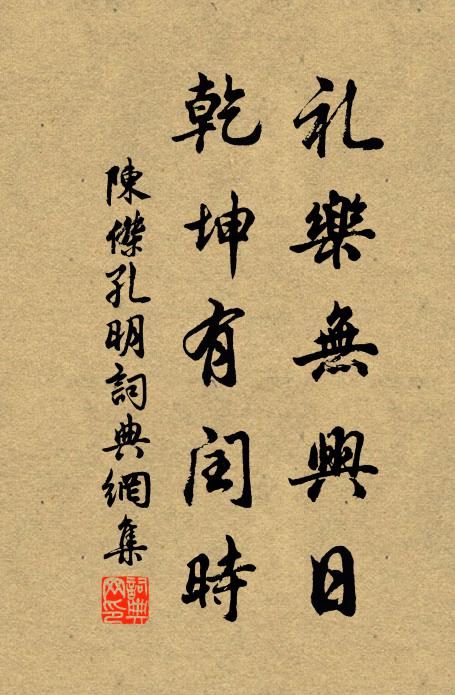 礼樂無興日
乾坤有闰時
陳傑孔明詞典網集
詞典网印